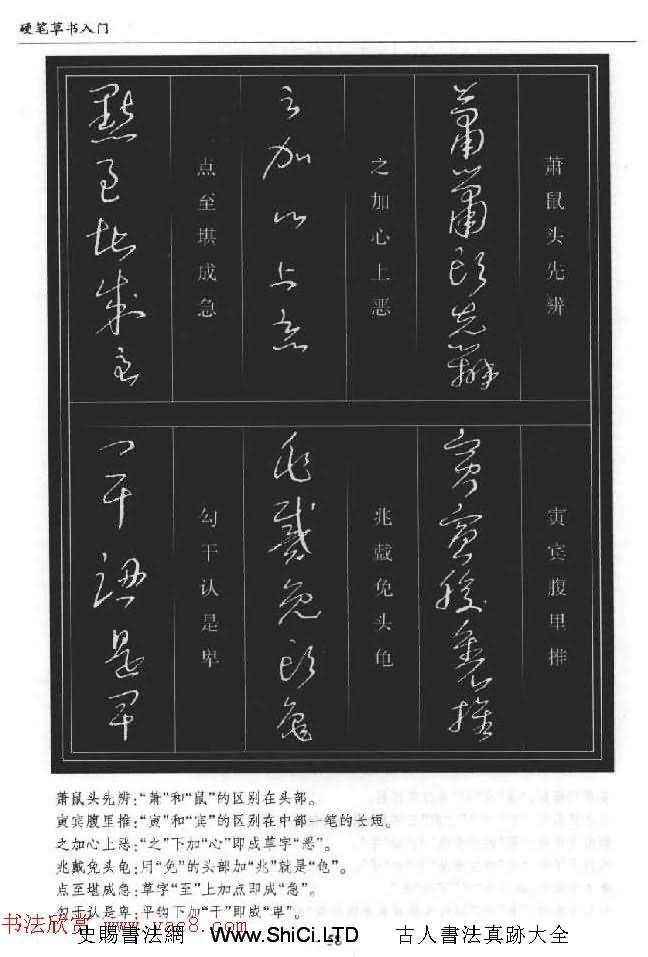 硬笔草书入门
萧鼠头先辨
蕭鼠頭先辨
之加心上恶
之加心上惡
点至堪成急
點至堪成急
寅宾腹里推
寅賓腹裏推
兆戴免头龟
兆戴免頭龜
勾干认是卑
勾干認是卑
萧鼠头先辨:“萧”和“鼠”的区别在头部。
寅宾腹里推:“寅”和“宾”的区别在中部一笔的长短。
之加心上恶:“之”下加“心”即成草字“恶”。
兆戴免头龟:用“免”的头部加“兆”就是“龟”。
点至堪成急:草字“至”上加点即成“急”。
勾干认是卑:平钩下加“干”即成“卑”。
书法欣赏 www.yac8.com
史賜書法網 Www.ShiCi.LTD 古人書法真跡大全